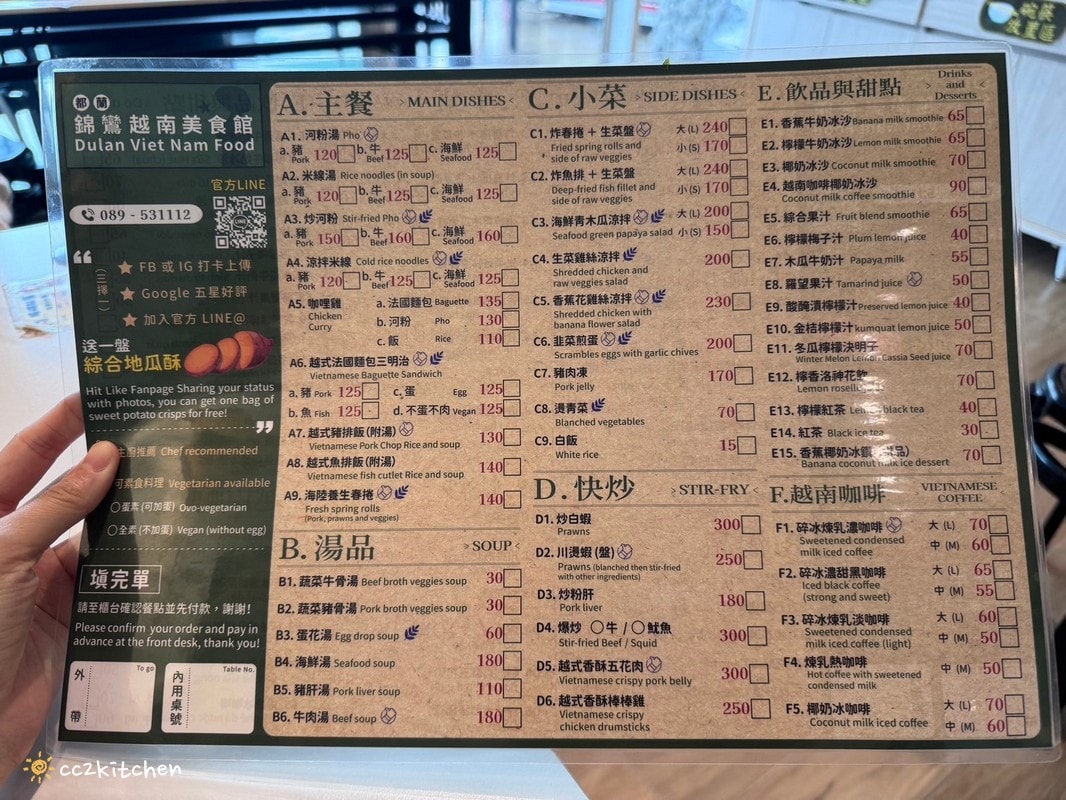 都蘭
錦鸞越南美食館
Dulan Viet Nam Food
官方LINE
089 - 531112
“
(三擇一)
★ FB 或 IG 打卡上傳
★ Google 五星好評
★ 加入官方 LINE@
送一盤
綜合地瓜酥
Hit Like Fanpage Sharing your status
with photos, you can get one bag of
sweet potato crisps for free!
”
主廚推薦 Chef recommended
可素食料理 Vegetarian available
〇蛋素 (可加蛋) Ovo-vegetarian
〇全素 (不加蛋) Vegan (without egg)
填完單
請至櫃台確認餐點並先付款，謝謝!
Please confirm your order and pay in
advance at the front desk, thank you!
外帶 To go
內用桌號 Table No.
A. 主餐 > MAIN DISHES <
A1. 河粉湯 Pho
a. 豬 Pork 120 b. 牛 Beef 125 c. 海鮮 Seafood 125
A2. 米線湯 Rice noodles (in soup)
a. 豬 Pork 120 b. 牛 Beef 125 c. 海鮮 Seafood 125
A3. 炒河粉 Stir-fried Pho
a. 豬 Pork 150 b. 牛 Beef 160 c. 海鮮 Seafood 160
A4. 涼拌米線 Cold rice noodles
a. 豬 Pork 120 b. 牛 Beef 125 c. 海鮮 Seafood 125
A5. 咖哩雞 a. 法國麵包 Baguette 135
Chicken Curry b. 河粉 Pho 130
c. 飯 Rice 110
A6. 越式法國麵包三明治
Vietnamese Baguette Sandwich
a. 豬 Pork 125 c. 蛋 Egg 125
b. 魚 Fish 125 d. 不蛋不肉 Vegan 125
A7. 越式豬排飯(附湯) 130
Vietnamese Pork Chop Rice and soup
A8. 越式魚排飯(附湯) 140
Vietnamese fish cutlet Rice and soup
A9. 海陸養生春捲 140
Fresh spring rolls
(Pork, prawns and veggies)
B. 湯品 > SOUP <
B1. 蔬菜牛骨湯 Beef broth veggies soup 30
B2. 蔬菜豬骨湯 Pork broth veggies soup 30
B3. 蛋花湯 Egg drop soup 60
B4. 海鮮湯 Seafood soup 180
B5. 豬肝湯 Pork liver soup 110
B6. 牛肉湯 Beef soup 180
C. 小菜 > SIDE DISHES <
C1. 炸春捲 + 生菜盤 大 (L) 240
Fried spring rolls and
side of raw veggies 小 (S) 170
C2. 炸魚排 + 生菜盤 大 (L) 240
Deep-fried fish fillet and
side of raw veggies 小 (S) 170
C3. 海鮮青木瓜涼拌 大 (L) 200
Seafood green papaya salad 小 (S) 150
C4. 生菜雞絲涼拌 200
Shredded chicken and
raw veggies salad
C5. 香蕉花雞絲涼拌 230
Shredded chicken with
banana flower salad
C6. 韭菜煎蛋 200
Scrambles eggs with garlic chives
C7. 豬肉凍 170
Pork jelly
C8. 燙青菜 70
Blanched vegetables
C9. 白飯 15
White rice
D. 快炒 > STIR-FRY <
D1. 炒白蝦 300
Prawns
D2. 川燙蝦 (盤) 250
Prawns (blanched then stir-fried
with other ingredients)
D3. 炒粉肝 180
Pork liver
D4. 爆炒 〇牛 / 〇魷魚 300
Stir-fried Beef / Squid
D5. 越式香酥五花肉 300
Vietnamese crispy pork belly
D6. 越式香酥棒棒雞 250
Vietnamese crispy
chicken drumsticks
E. 飲品與甜點 > Drinks and Desserts <
E1. 香蕉牛奶冰沙 Banana milk smoothie 65
E2. 檸檬牛奶冰沙 Lemon milk smoothie 65
E3. 椰奶冰沙 Coconut milk smoothie 70
E4. 越南咖啡椰奶冰沙 90
Coconut milk coffee smoothie
E5. 綜合果汁 Fruit blend smoothie 65
E6. 檸檬梅子汁 Plum lemon juice 40
E7. 木瓜牛奶汁 Papaya milk 55
E8. 羅望果汁 Tamarind juice 50
E9. 酸醃漬檸檬汁 Preserved lemon juice 40
E10. 金桔檸檬汁 kumquat lemon juice 50
E11. 冬瓜檸檬決明子 70
Winter Melon Lemon Cassia Seed juice
E12. 檸香洛神花飲 70
Lemon roselle
E13. 檸檬紅茶 Lemon black tea 40
E14. 紅茶 Black ice tea 30
E15. 香蕉椰奶冰 70
Banana coconut milk ice dessert
F. 越南咖啡 > VIETNAMESE COFFEE <
F1. 碎冰煉乳濃咖啡 大 (L) 70
Sweetened condensed
milk iced coffee 中 (M) 60
F2. 碎冰濃甜黑咖啡 大 (L) 65
Iced black coffee
(strong and sweet) 中 (M) 55
F3. 碎冰煉乳淡咖啡 大 (L) 60
Sweetened condensed
milk iced coffee (light) 中 (M) 50
F4. 煉乳熱咖啡 中 (M) 50
Hot coffee with sweetened
condensed milk
F5. 椰奶冰咖啡 大 (L) 70
Coconut milk iced coffee 中 (M) 60
cc2kitchen